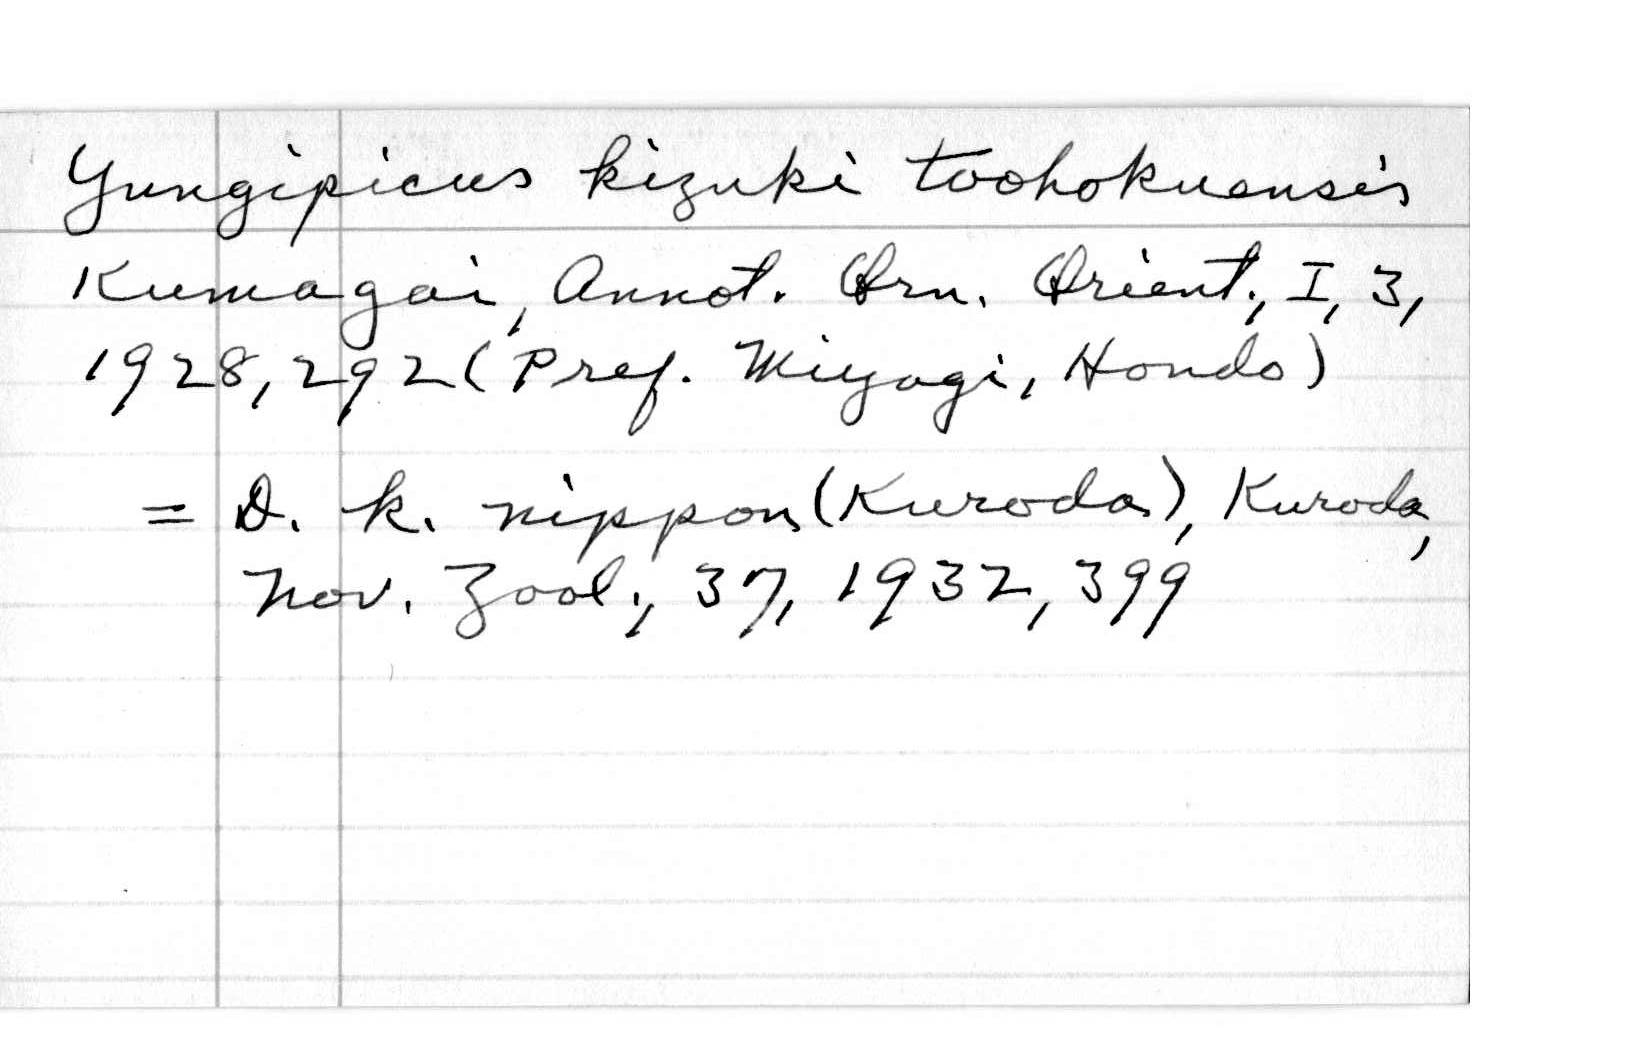 Yungipicus kizuki toohokuensis
Kumagai, Annot. Orn. Orient., I, 3,
1928, 292 (Pref. Miyagi, Hondo)
= D. k. nippon (Kuroda), Kuroda,
Nov. Zool., 37, 1932, 399